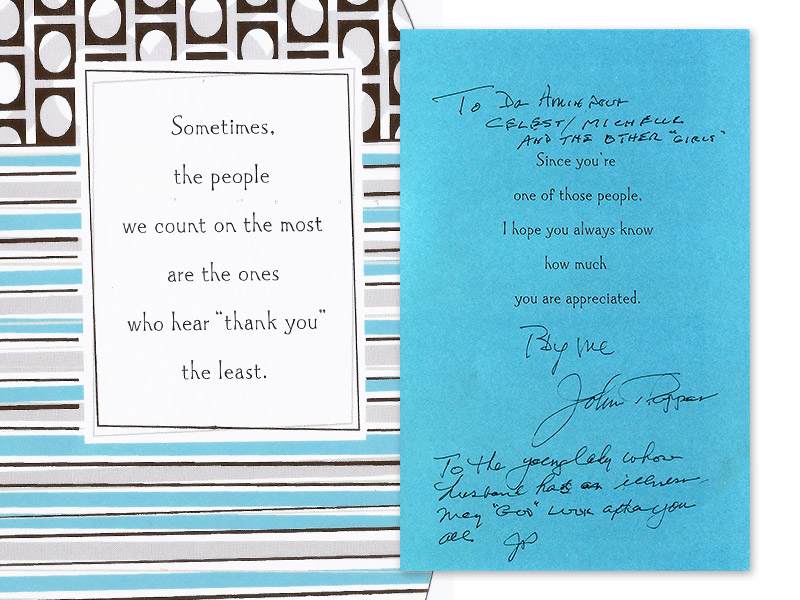 Sometimes,
the people
we count on the most
are the ones
who hear “thank you”
the least.
To Dr
CELEST/ MICHELLE
AND THE OTHER "GIRLS"
Since you're
one of those people,
I hope you always know
how much
you are appreciated.
By me
John
To the young lady whose
husband has an illness
may "GOD" look after you
all. JP